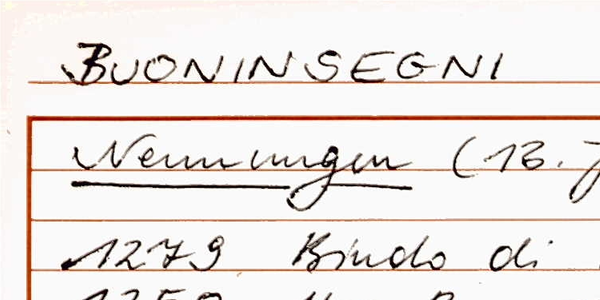 BUONINSEGNI
Nennungen (13. J
1279 Bindo di